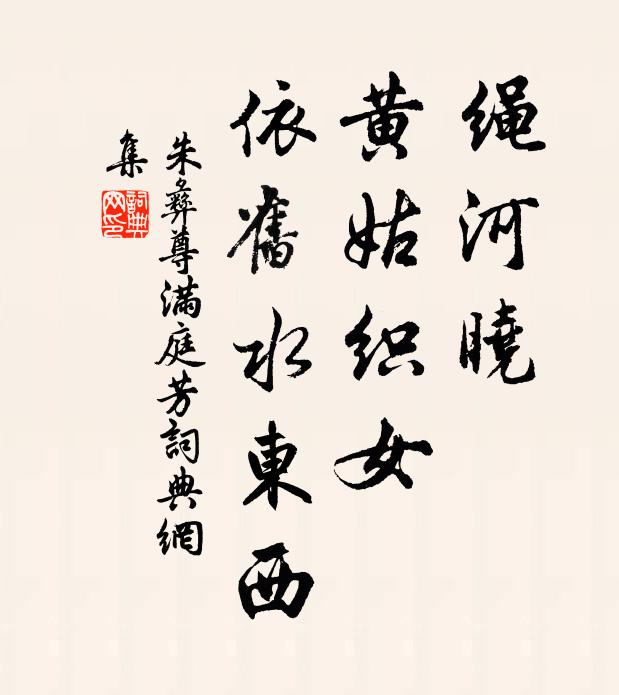 绳河曉
黃姑织女
依舊水東西
朱彝尊滿庭芳詞典網
集
詞典网印